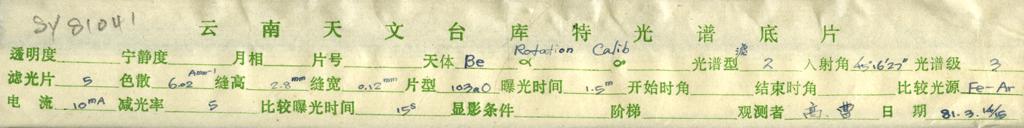 SY 81041
云南天文台库特光谱底片
透明度 宁静度 月相 片号 天体 Be Rotation Calib α 光谱型 滤 2 入射角 45°6'27" 光谱级 3
滤光片 5 色散 6.02 Amm⁻¹ 缝高 2.8mm 缝宽 0.12mm 片型 103aO 曝光时间 1.5m 开始时角 结束时角 比较光源 Fe-Ar
电流 10mA 减光率 5 比较曝光时间 15s 显影条件 阶梯 观测者 高 曹 日期 81.3.14/15